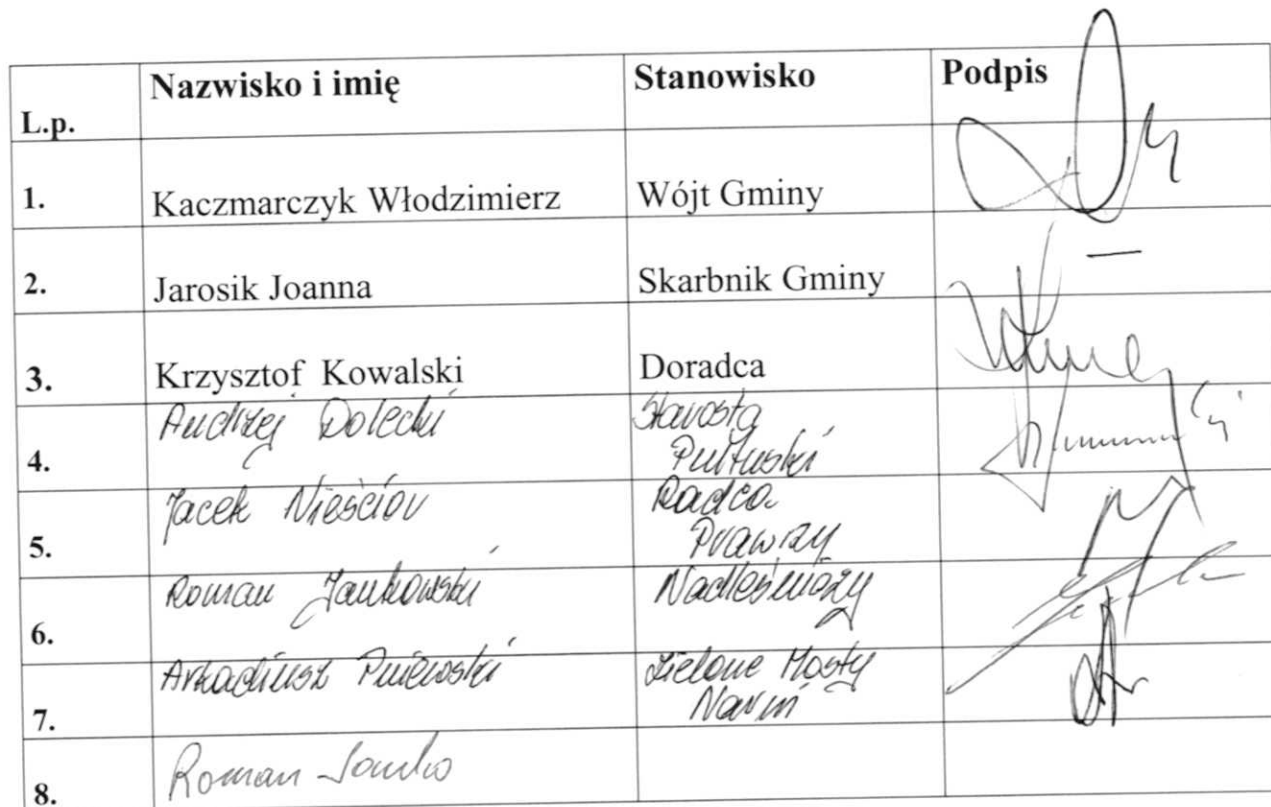 L.p. Nazwisko i imię Stanowisko Podpis
1. Kaczmarczyk Włodzimierz Wójt Gminy
2. Jarosik Joanna Skarbnik Gminy
3. Krzysztof Kowalski Doradca
4. Andrzej Dolecki Starosta
Pułtuski
5. Jacek Nieścior Radca
Prawny
6. Roman Jankowski Nadleśniczy
7. Arkadiusz Pniewski Zielone Mosty
Narwi
8. Roman